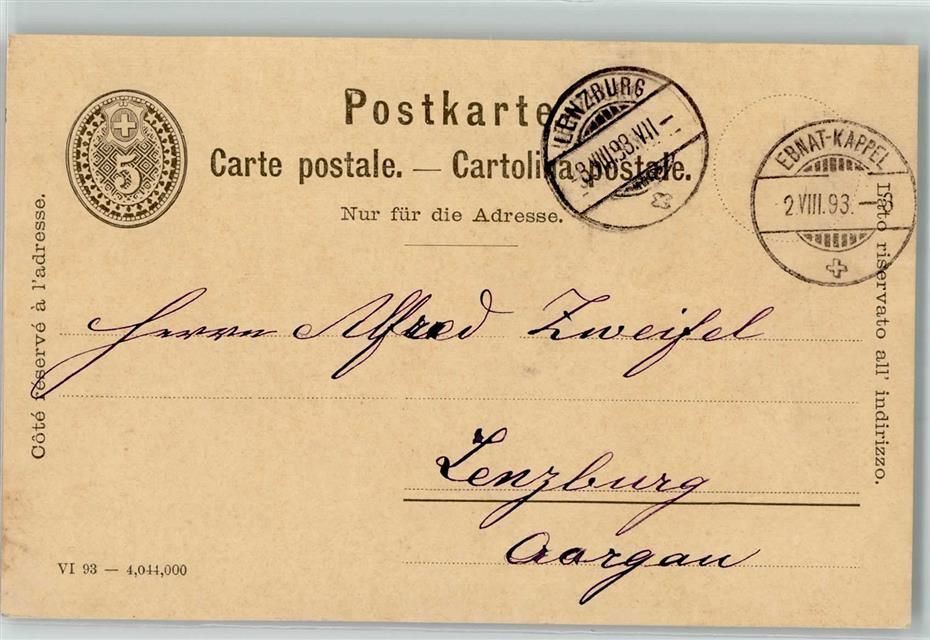 5
Postkarte
Carte postale. — Cartolina postale.
Nur für die Adresse.
LENZBURG
3.VIII.93.VII–
EBNAT-KAPPEL
2.VIII.93.–8
Côté réservé à l'adresse.
Lato riservato all' indirizzo.
Herrn Alfred Zweifel
Lenzburg
Aargau
VI 93 — 4,044,000